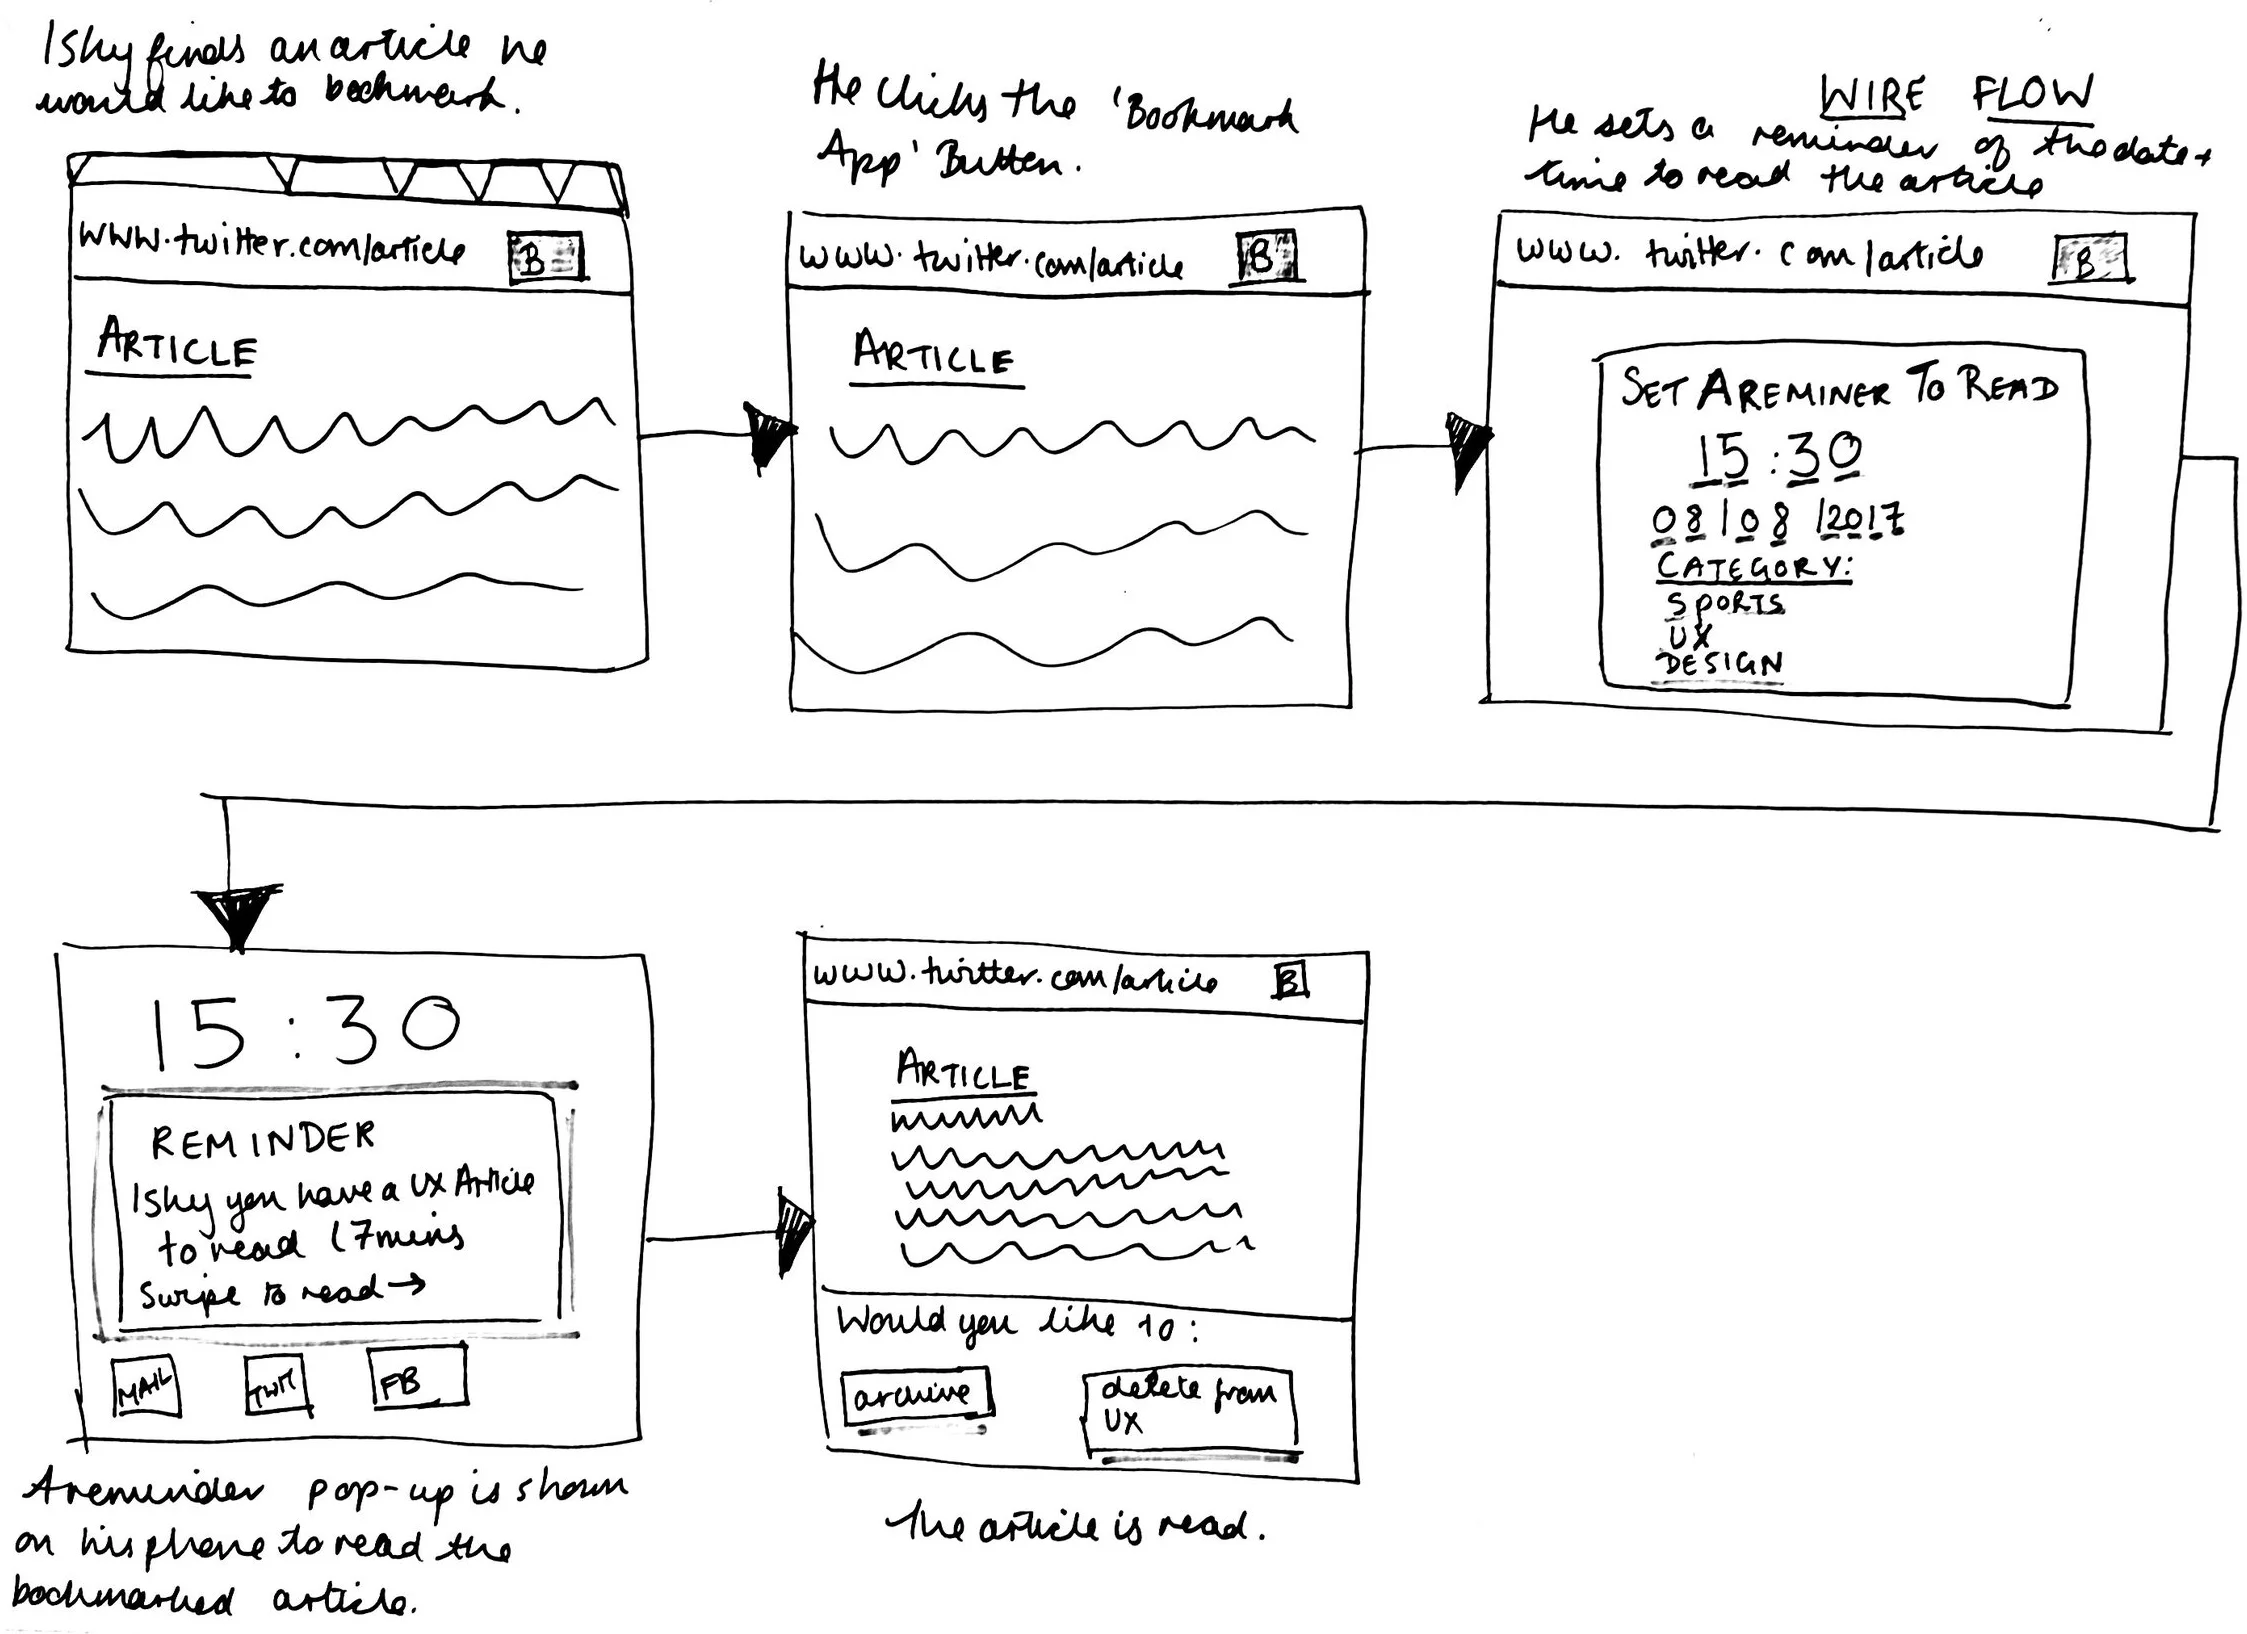 Ishy finds an article he
would like to bookmark.
www.twitter.com/article B
ARTICLE
He clicks the 'Bookmark
App' Button.
www.twitter.com/article B
ARTICLE
WIRE FLOW
He sets a reminder of the date +
time to read the article
www.twitter.com/article B
SET A REMINER TO READ
15:30
08/08/2017
CATEGORY:
SPORTS
UX
DESIGN
15:30
REMINDER
Ishy you have a UX Article
to read (7mins
Swipe to read →
MAIL TWIT FB
A reminder pop-up is shown
on his phone to read the
bookmarked article.
www.twitter.com/article B
ARTICLE
Would you like to:
archive
delete from
UX
The article is read.